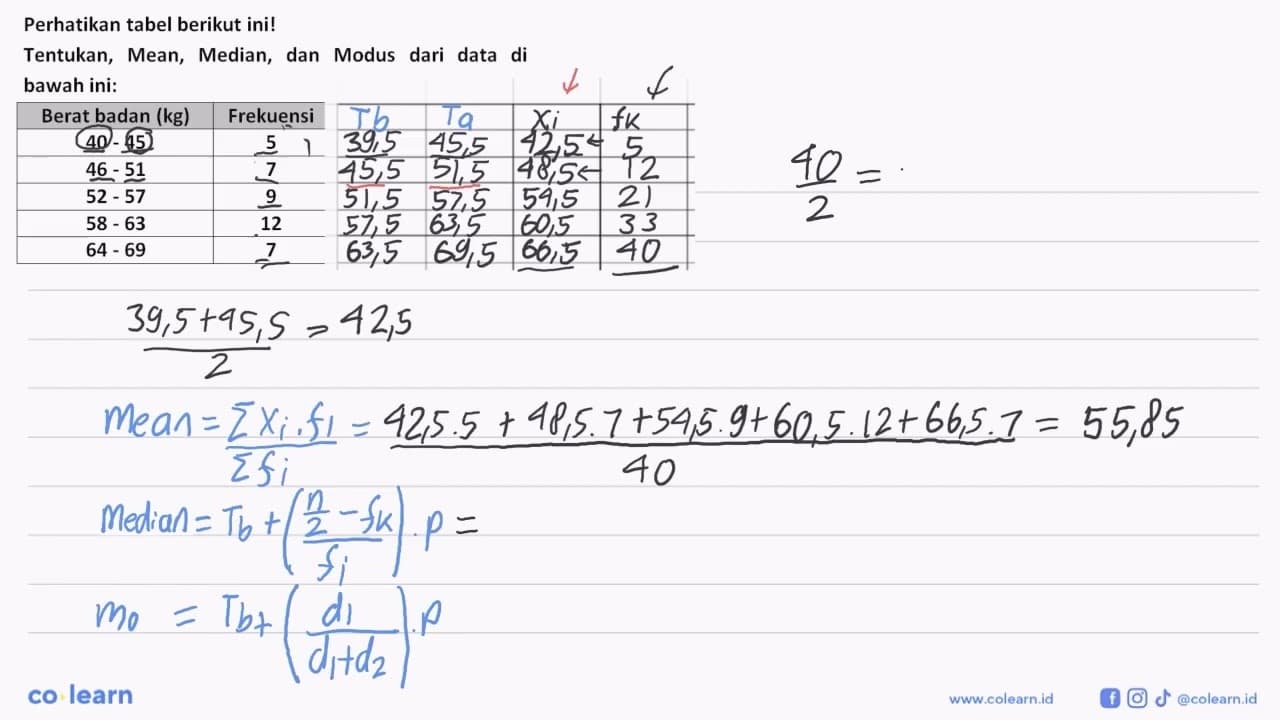 Perhatikan tabel berikut ini!
Tentukan, Mean, Median, dan Modus dari data di
bawah ini:
Berat badan (kg) Frekuensi Tb Ta Xi fk
40 - 45 5 39,5 45,5 42,5 ← 5
46 - 51 7 45,5 51,5 48,5 ← 12
52 - 57 9 51,5 57,5 54,5 21
58 - 63 12 57,5 63,5 60,5 33
64 - 69 7 63,5 69,5 66,5 40
40/2 =
39,5+45,5/2 = 42,5
Mean = Σxi.fi/Σfi = 42,5.5 + 48,5.7+54,5.9+60,5.12+66,5.7/40 = 55,85
Median = Tb + (n/2 - fk/fi).p =
mo = Tb+ (d1/d1+d2).p
co learn
www.colearn.id @colearn.id